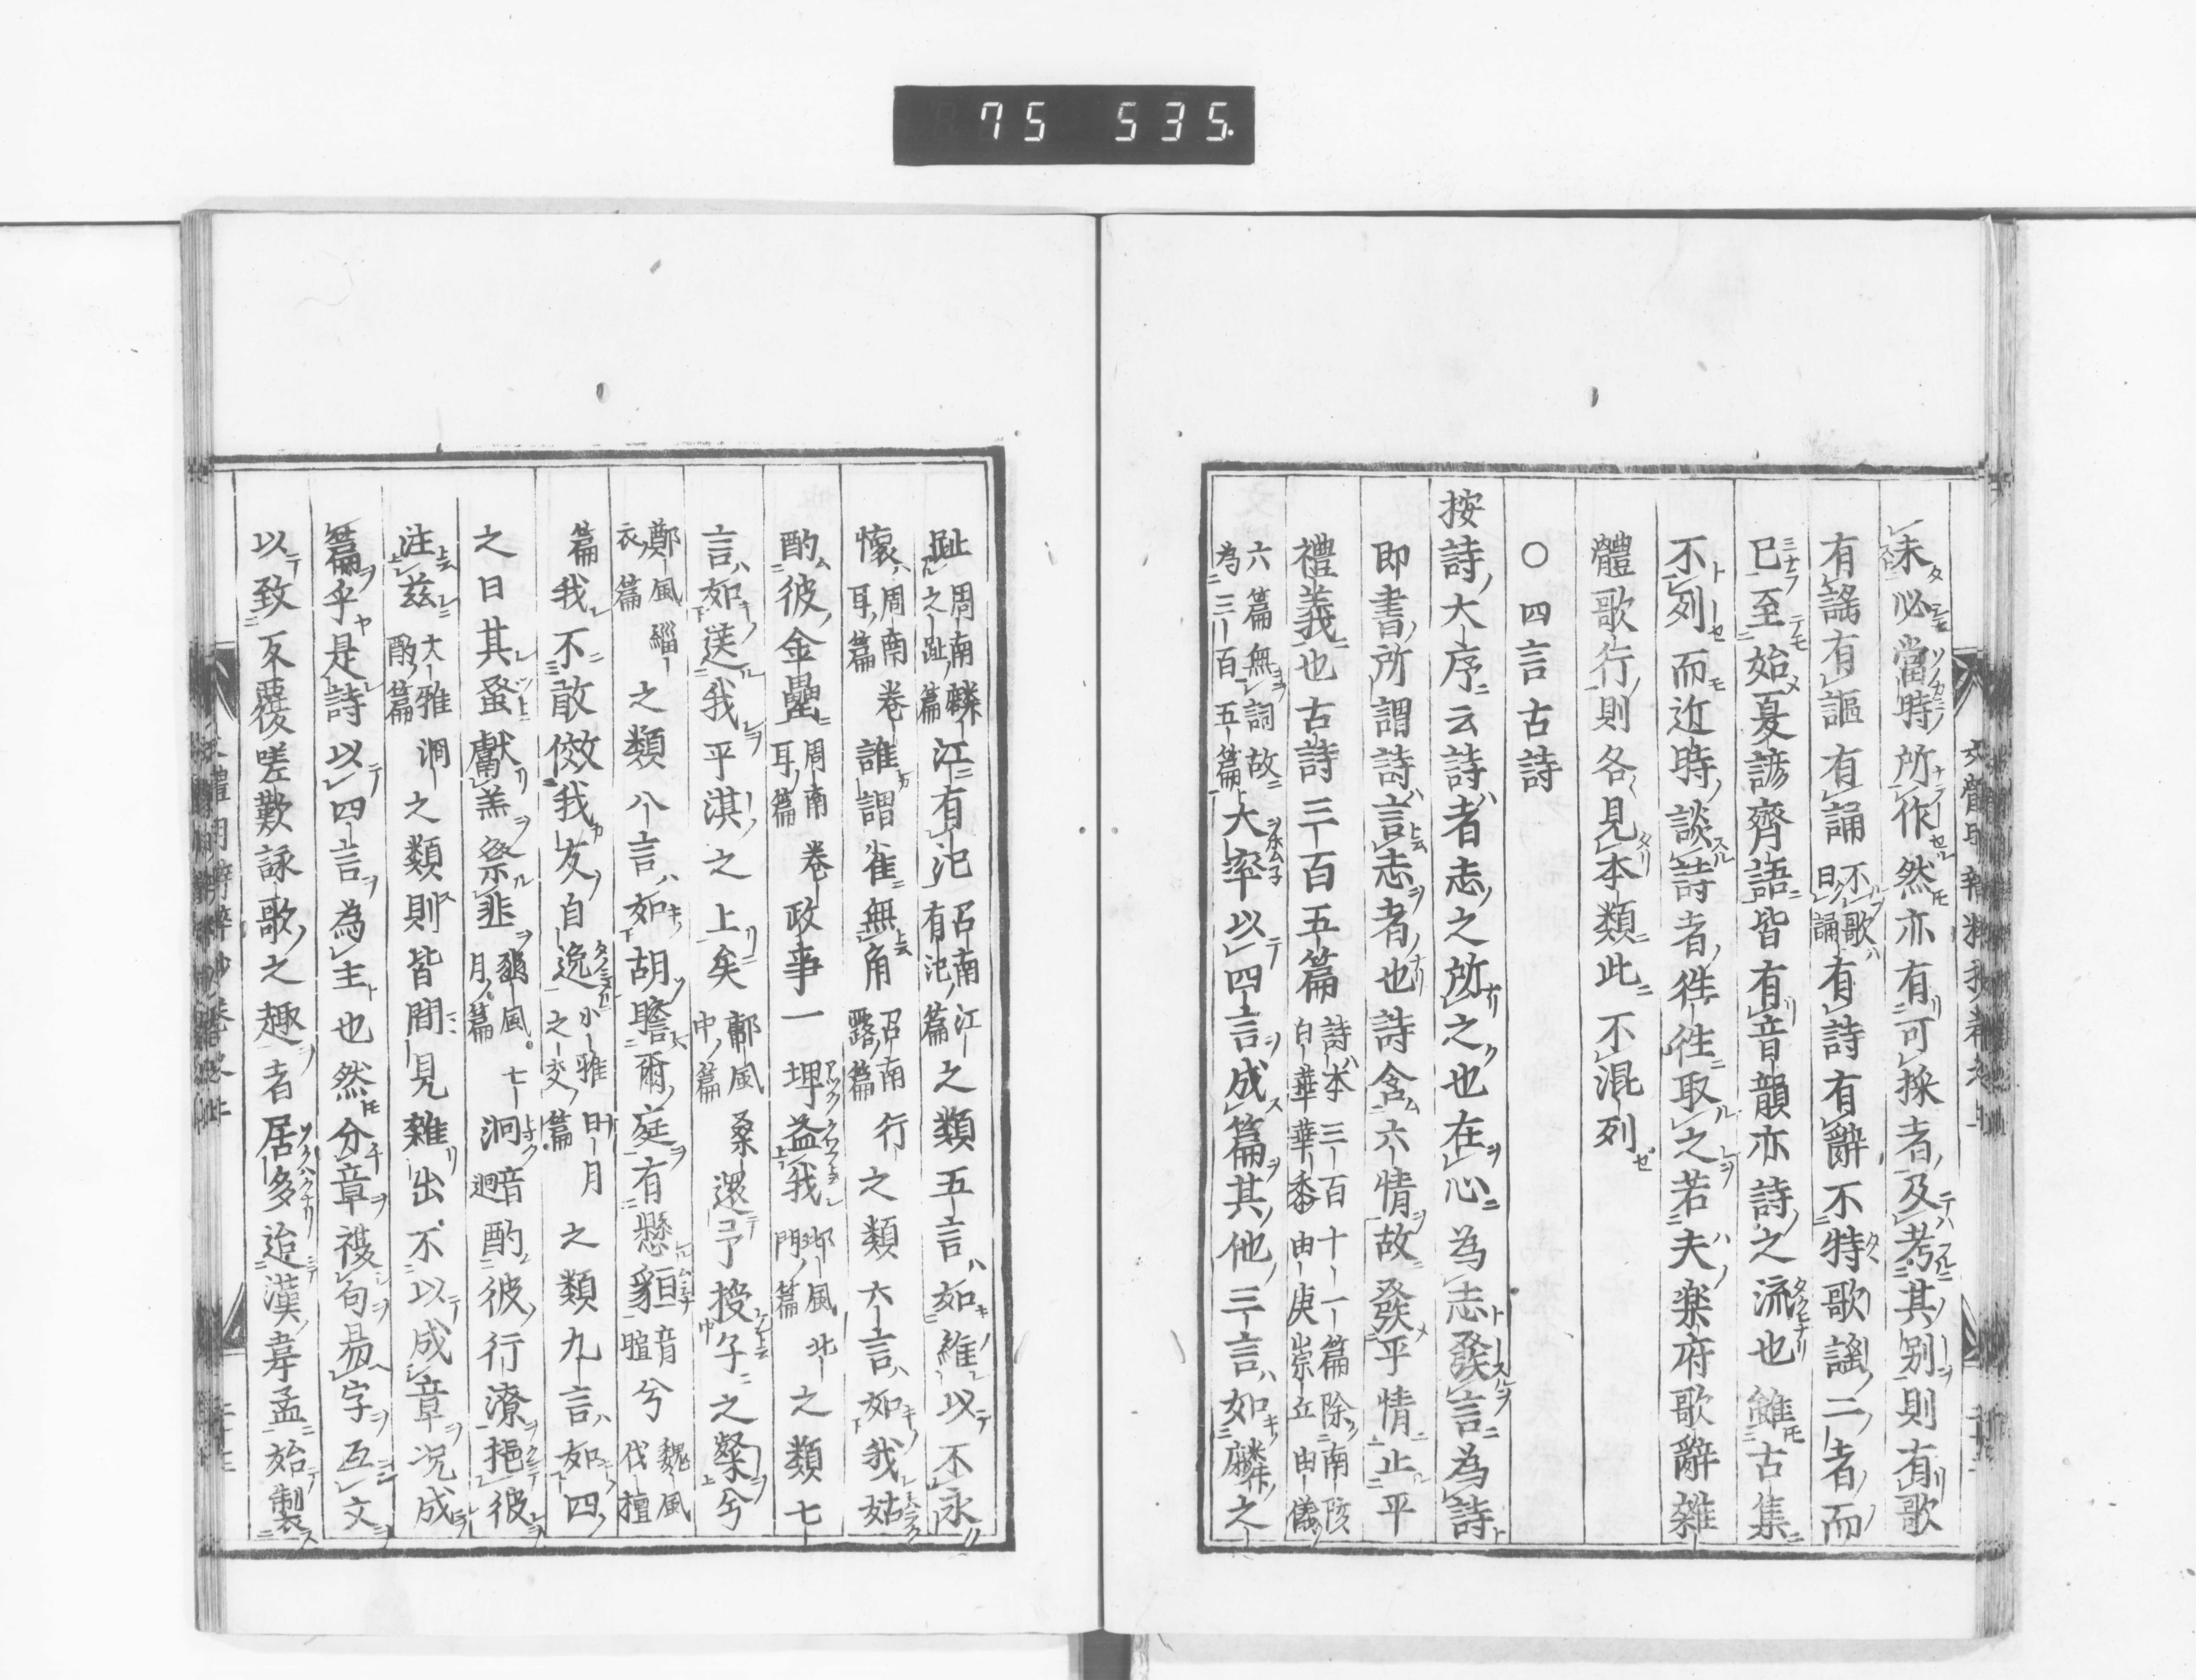 75 535
未必當時所作然亦有可採者及考其別則有歌
有謠有謳有誦不歌曰誦有詩有辭不特歌謠二者而
已至始夏諺齊語皆有音韻亦詩之流也雖古集
不列而近時談詩者徃徃取之若夫楽府歌辭雜
體歌行則各見本類此不混列
○四言古詩
按詩大序云詩者志之所之也在心為志發言為詩
即書所謂詩言志者也詩含六情故發乎情止乎
禮義也古詩三百五篇詩本三百十一篇除南陔白華華黍由庚崇丘由儀
六篇無詞故為三百五篇大率以四言成篇其他三言如麟之
趾周南麟之趾篇江有汜召南江有汜篇之類五言如維以不永
懷周南卷耳篇誰謂雀無角召南行露篇之類六言如我姑
酌彼金罍周南卷耳篇政事一埤益我邶風北門篇之類七
言如送我乎淇之上矣鄘風桑中篇還予授子之粲兮
鄭風緇衣篇之類八言如胡瞻爾庭有懸貆音暄兮魏風伐檀
篇我不敢傚我友自逸小雅十月之交篇之類九言如四
之日其蚤獻羔祭韭豳風七月篇泂音迥酌彼行潦挹彼
注茲大雅泂酌篇之類則皆間見雜出不以成章况成
篇乎是詩以四言為主也然分章複句易字互文
以致反覆嗟歎詠歌之趣者居多迨漢韋孟始製